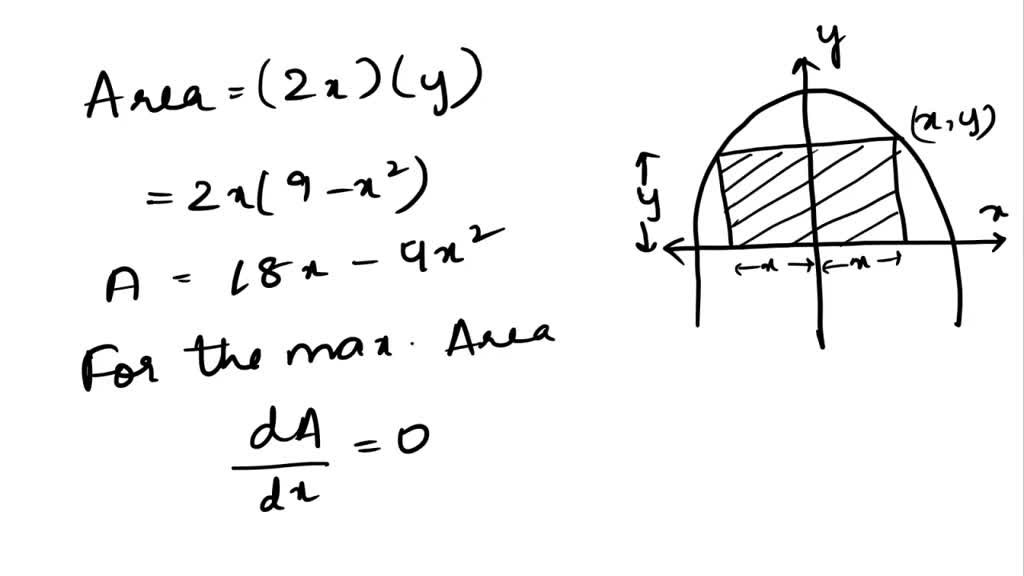 Area = (2x)(y)
= 2x(9 - x²)
A = 18x - 9x²
For the max. Area
dA/dx = 0
y
(x, y)
y
x
x
x